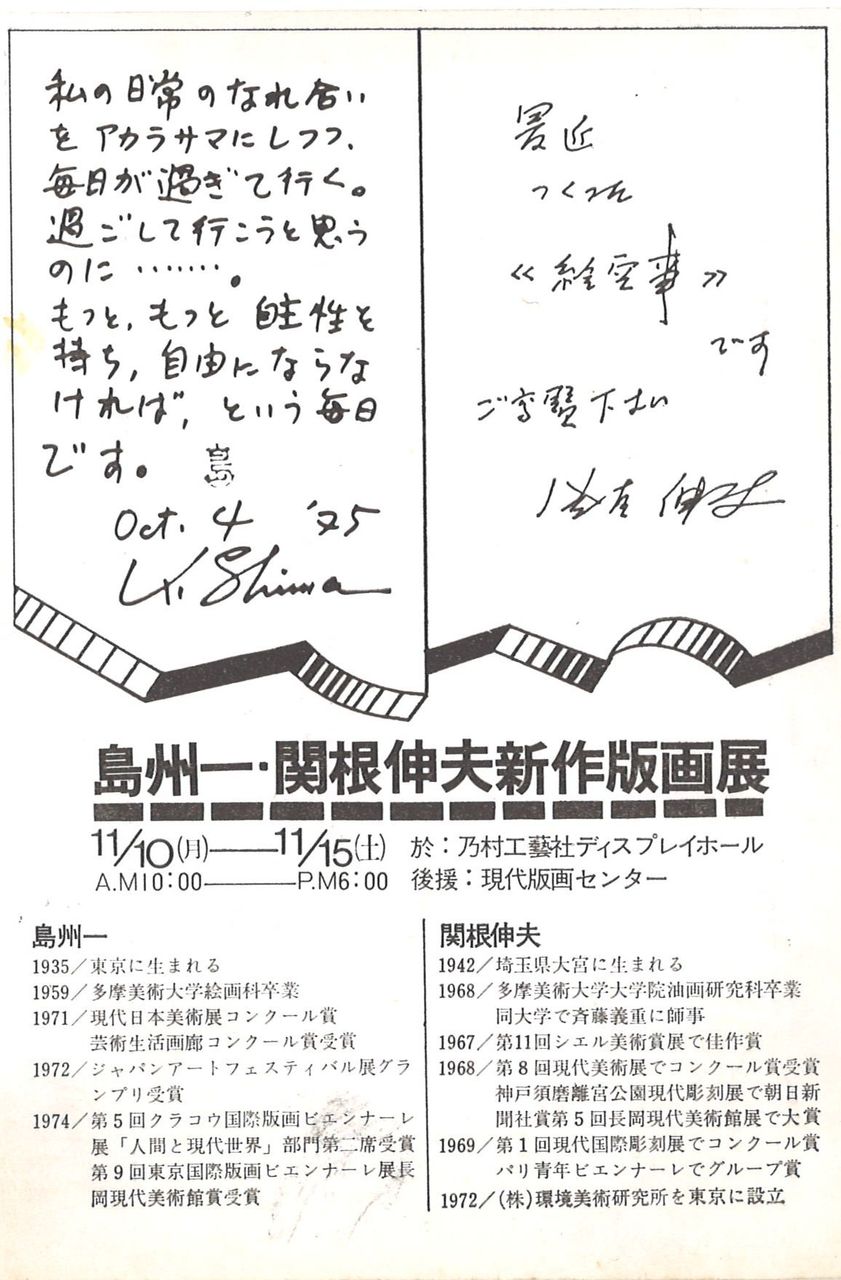 私の日常のなれ合い
を アカラサマにしつつ、
毎日が過ぎて行く。
過ごして行こうと思う
のに ‥‥‥‥。
もっと、もっと 自主性を
持ち、自由にならな
ければ、という毎日
です。 島
Oct. 4 '75
K. Shima
最近
つくった
《絵空事》
です
ご高覧下さい
関根伸夫
島州一・関根伸夫新作版画展
11/10(月)──11/15(土) 於：乃村工藝社ディスプレイホール
A.M10:00──P.M6:00 後援：現代版画センター
島州一
1935／東京に生まれる
1959／多摩美術大学絵画科卒業
1971／現代日本美術展コンクール賞
芸術生活画廊コンクール賞受賞
1972／ジャパンアートフェスティバル展グラ
ンプリ受賞
1974／第5回クラコウ国際版画ビエンナーレ
展「人間と現代世界」部門第二席受賞
第9回東京国際版画ビエンナーレ展長
岡現代美術館賞受賞
関根伸夫
1942／埼玉県大宮に生まれる
1968／多摩美術大学大学院油画研究科卒業
同大学で斉藤義重に師事
1967／第11回シエル美術賞展で佳作賞
1968／第8回現代美術展でコンクール賞受賞
神戸須磨離宮公園現代彫刻展で朝日新
聞社賞第5回長岡現代美術館展で大賞
1969／第1回現代国際彫刻展でコンクール賞
パリ青年ビエンナーレでグループ賞
1972／(株)環境美術研究所を東京に設立